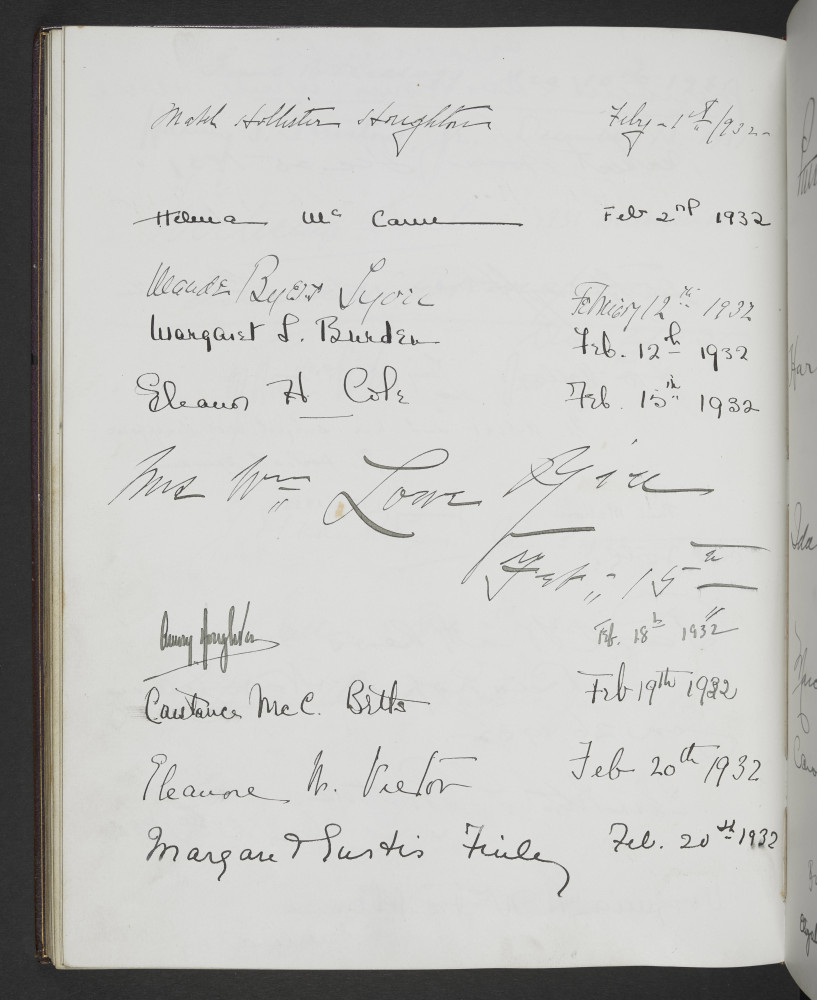 Mabel Hollister Houghton Feby - 1st / 932 -
Helena McCann Feb 2nd 1932
Maude Byers Lyon February 12th 1932
Margaret L. Burden Feb. 12th 1932
Eleanor H Cole Feb. 15th 1932
Mrs Wm Lowe
Feb. 15th
Houghton Feb. 18th 1932
Constance McC. Betts Feb 19th 1932
Eleanore M. Vietor Feb 20th 1932
Margaret Finley Feb. 20th 1932